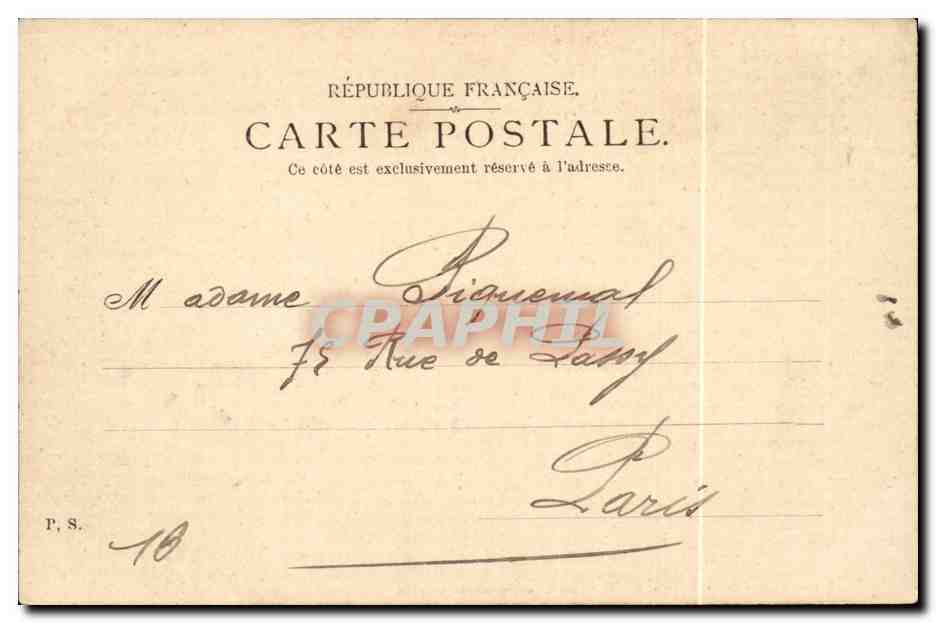 RÉPUBLIQUE FRANÇAISE.
CARTE POSTALE.
Ce côté est exclusivement réservé à l'adresse.
Madame Piquemal
CPAPHIL
75 Rue de Passy
Paris
P, S.
16